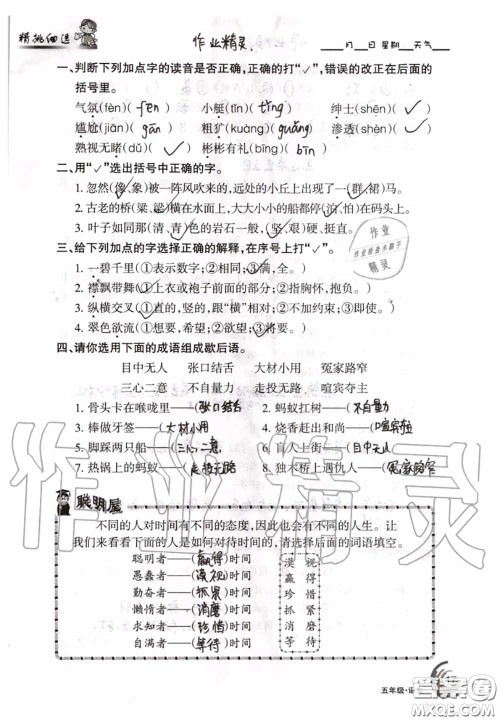 精挑细选
作业精灵
____月____日 星期____ 天气____
一、判断下列加点字的读音是否正确,正确的打“✓”,错误的改正在后面的
括号里。
气氛(fèn)( fēn ) 小艇(tǐng)( tǐng ) 绅士(shēn)( ✓ )
尴尬(jiān)( gān ) 粗犷(kuàng)( guǎng ) 渗透(shèn)( ✓ )
熟视无睹(dǔ)( ✓ ) 彬彬有礼(bīng)( bīn )
二、用“✓”选出括号中正确的字。
1. 忽然(像、象)被一阵风吹来的,远处的小丘上出现了一(群、裙)马。
2. 古老的桥(梁、粱)横在水面上,大大小小的船都停(泊、怕)在码头上。
3. 叶子如同那(清、青)色的岩石有深深的纹痕。
三、给下列加点的字选择正确的解释,在序号上打“✓”。
1. 一碧千里(①表示数字;②相同;③满,全)。
2. 襟飘带舞(①上衣或袍子前面的部分;②指胸怀,抱负)。
3. 纵横交叉(①直的,竖的,跟“横”相对;②不加约束)。
4. 翠色欲流(①想要,希望;②欲望;③将要)。
四、请你选用下面的成语组成歇后语。
目中无人 张口结舌 大材小用 冤家路窄
三心二意 不自量力 走投无路 喧宾夺主
1. 骨头卡在喉咙里——(张口结舌) 2. 蚂蚁扛树——(不自量力)
3. 棒做牙签——(大材小用) 4. 烧香赶出和尚——(喧宾夺主)
5. 脚踩两只船——(三心二意) 6. 眼睛长在额头上——(目中无人)
7. 热锅上的蚂蚁——(走投无路) 8. 独木桥上遇仇人——(冤家路窄)
聪明屋
不同的人对时间有不同的态度,因此也会有不同的人生。让
我们来看看下面的人是如何对待时间的,请选择后面的词语填空。
聪明者——(赢得)时间 漠视
愚蠢者——(漠视)时间 赢得
勤奋者——(抓紧)时间 珍惜
懒惰者——(消磨)时间 抓紧
求知者——(珍惜)时间 消磨
自满者——(等待)时间 等待
作业精灵
五年级·语